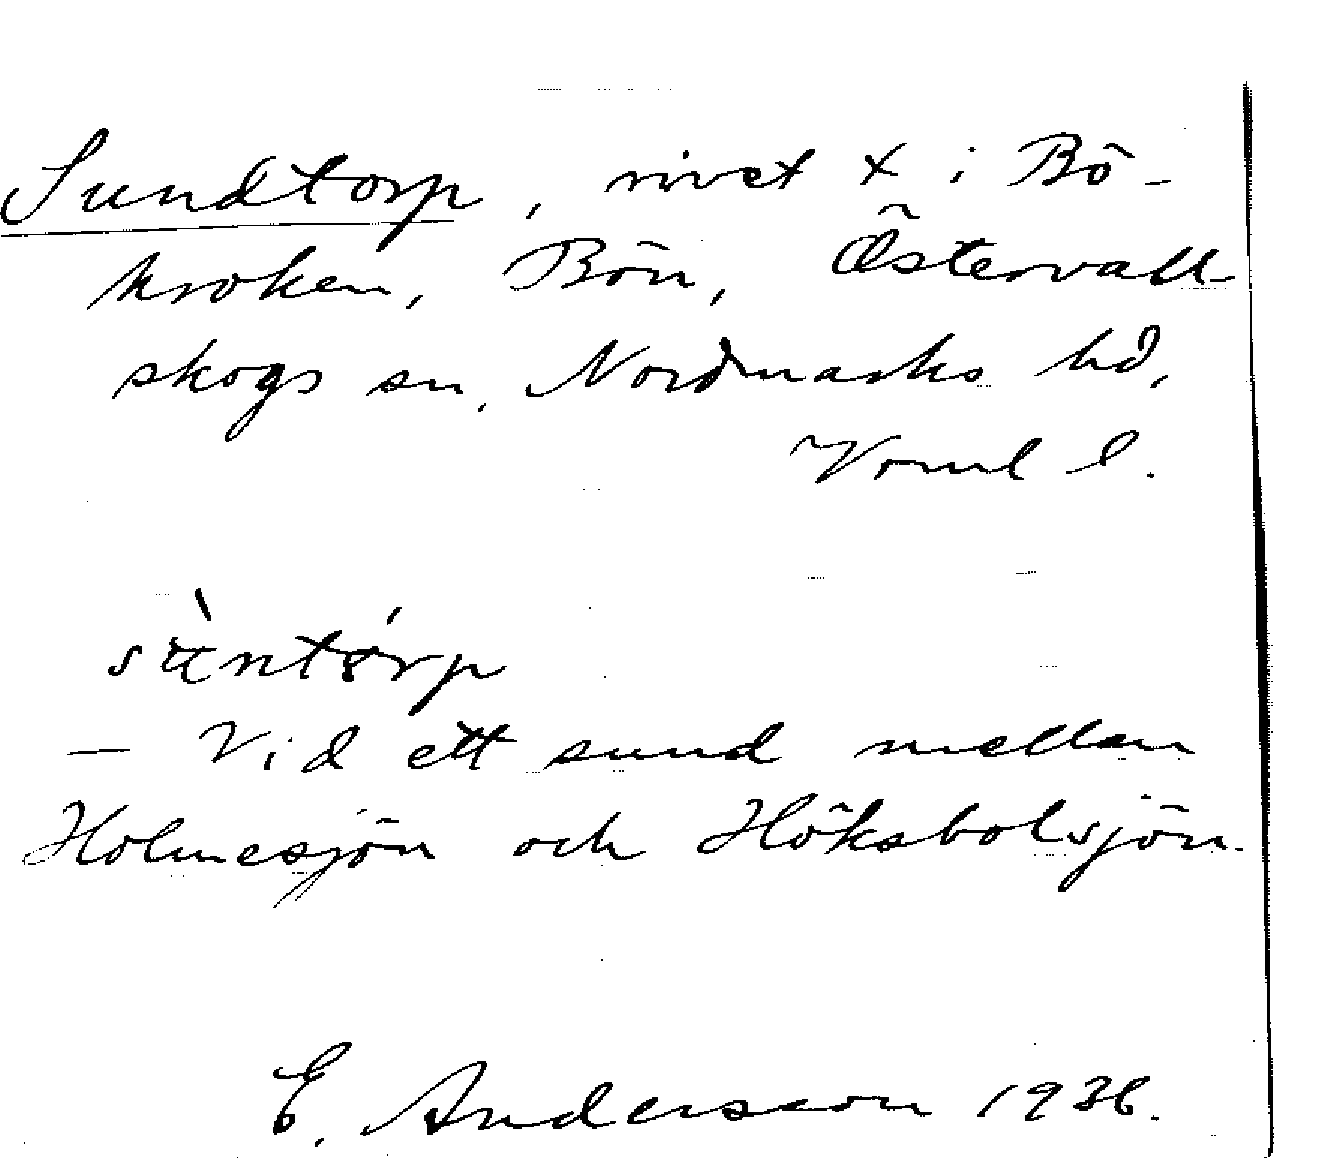 Sundtorp, rivet t i Bö-
kroken, Bön, Östervall-
skogs sn, Nordmarks hd,
Vrml l.
sùntó̵rp
— Vid ett sund mellan
Holmesjön och Höksbolsjön.
E. Andersson 1936.